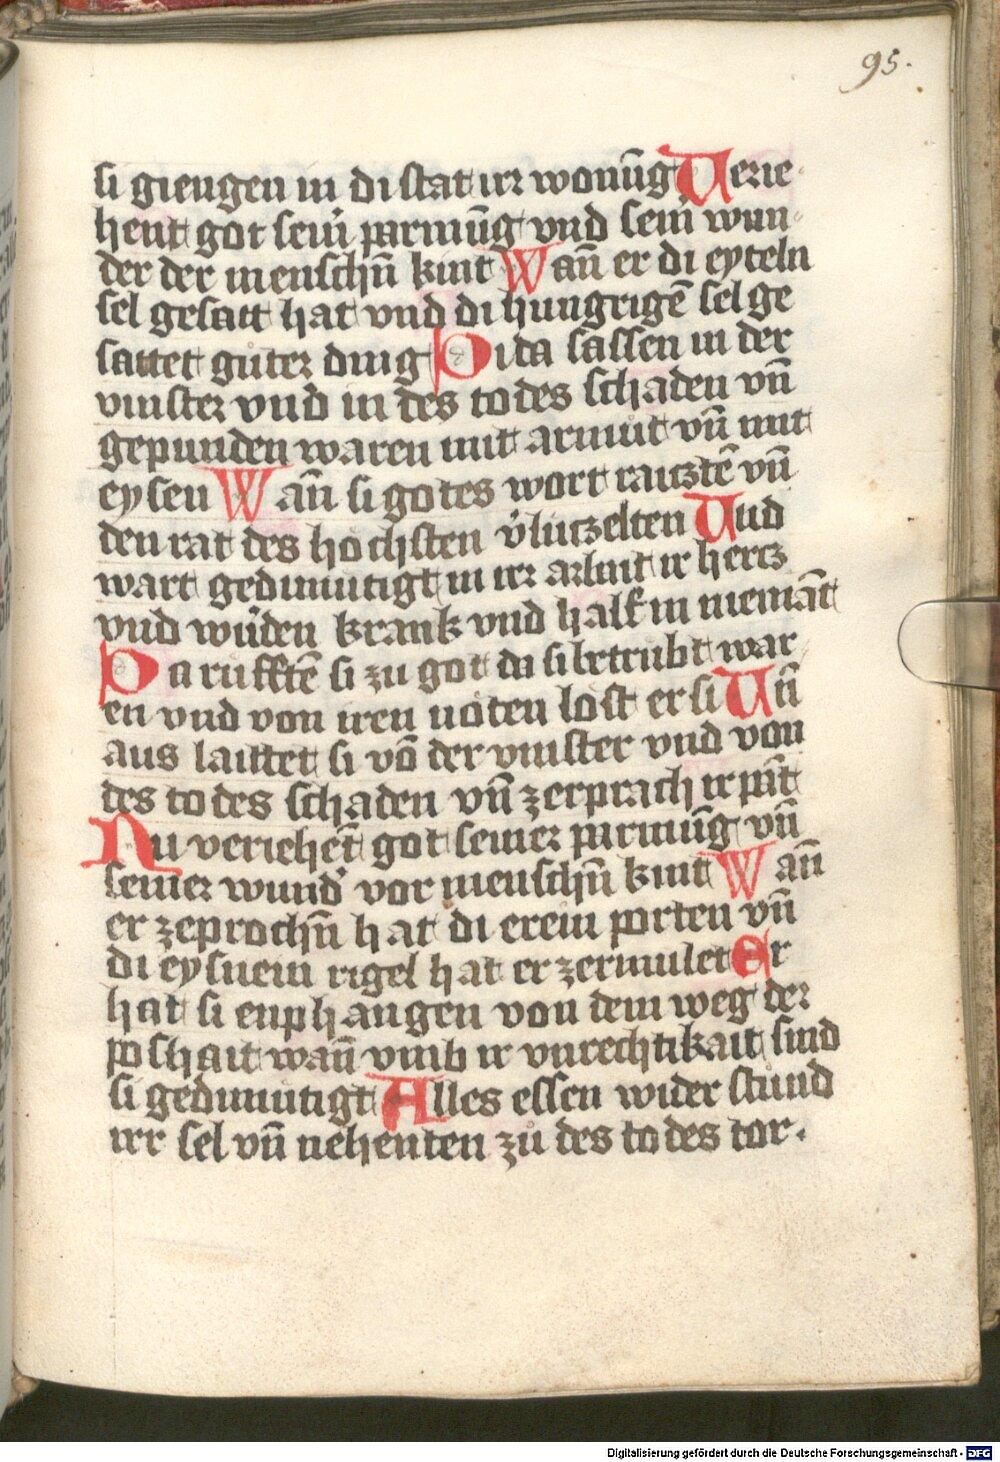 95.
si giengen in di stat irr wonūg Verie-
hent got seiner parmūg vnd sein̄ wun-
der der menschn̄ kint Wan̄ er di eyteln
sel gesatt hat vnd di hungrigē sel ge
sattet guͤter ding Di da sassen in der
vinster vnd in des todes schaden vn̄
gepunden waren mit armuͤt vn̄ mit
eysen Wan̄ si gotes wort raitztē vn̄
den rat des hochsten v̓luczelten Vnd
wart gedimuͤtigt in irr arbait ir hercz
vnd wuͤrden krank vnd half in niemāt
Da ruͤfftē si zu got da si betruͤbt war
en vnd von iren noͤten loͤst er si Vn̄
aus laittet si vō der vinster vnd von
des todes schaden vn̄ zerprach ir pāt
Nu veriehēt got seiner parmūg vn̄
seiner wund̓ vor menschn̄ kint Wan̄
er zeprochn̄ hat di erein porten vn̄
di eysnein rigel hat er zermulet Er
hat si enphangen von dem weg der
poshait wan̄ vmb ir vnrechtikait sind
si gedimuͤtigt Alles essen wider stuͤnd
irr sel vn̄ nehenten zuͤ des todes tor.
Digitalisierung gefördert durch die Deutsche Forschungsgemeinschaft - DFG